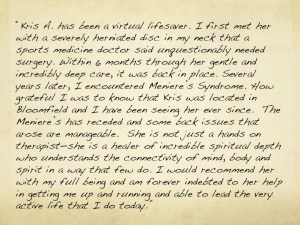 "Kris A. has been a virtual lifesaver. I first met her
with a severely herniated disc in my neck that a
sports medicine doctor said unquestionably needed
surgery. Within 6 months through her gentle and
incredibly deep care, it was back in place. Several
years later, I encountered Meniere's Syndrome. How
grateful I was to know that Kris was located in
Bloomfield and I have been seeing her ever since. The
Meniere's has receded and some back issues that
arose are manageable. She is not just a hands on
therapist—she is a healer of incredible spiritual depth
who understands the connectivity of mind, body and
spirit in a way that few do. I would recommend her
with my full being and am forever indebted to her help
in getting me up and running and able to lead the very
active life that I do today."